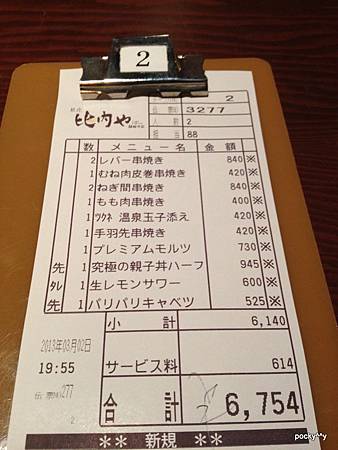 2
銀座
比内や
2
伝票NO 3277
人数 2
担当 88
数 メニュー名 金額
2 レバー串焼き 840※
1 むね肉皮巻串焼き 420※
2 ねぎ間串焼き 840※
1 もも肉串焼き 400※
1 ﾂｸﾈ 温泉玉子添え 420※
1 手羽先串焼き 420※
1 プレミアムモルツ 730※
先 1 究極の親子丼ハーフ 945※
外 1 生レモンサワー 600※
先 1 パリパリキャベツ 525※
小計 6,140
2013年03月02日
19:55 サービス料 614
伝票NO277
合計 6,754
2
** 新規 **
pocky^^y